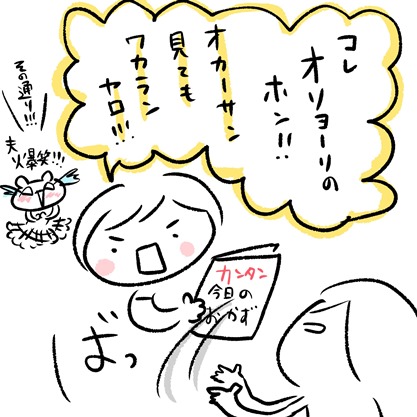 コレ
オリョーリの
ホン!!
オカーサン
見ても
ワカラン
ヤロ!!!
その通り!!!
夫
爆笑!!!
カンタン
今日の
おかず
ばっ